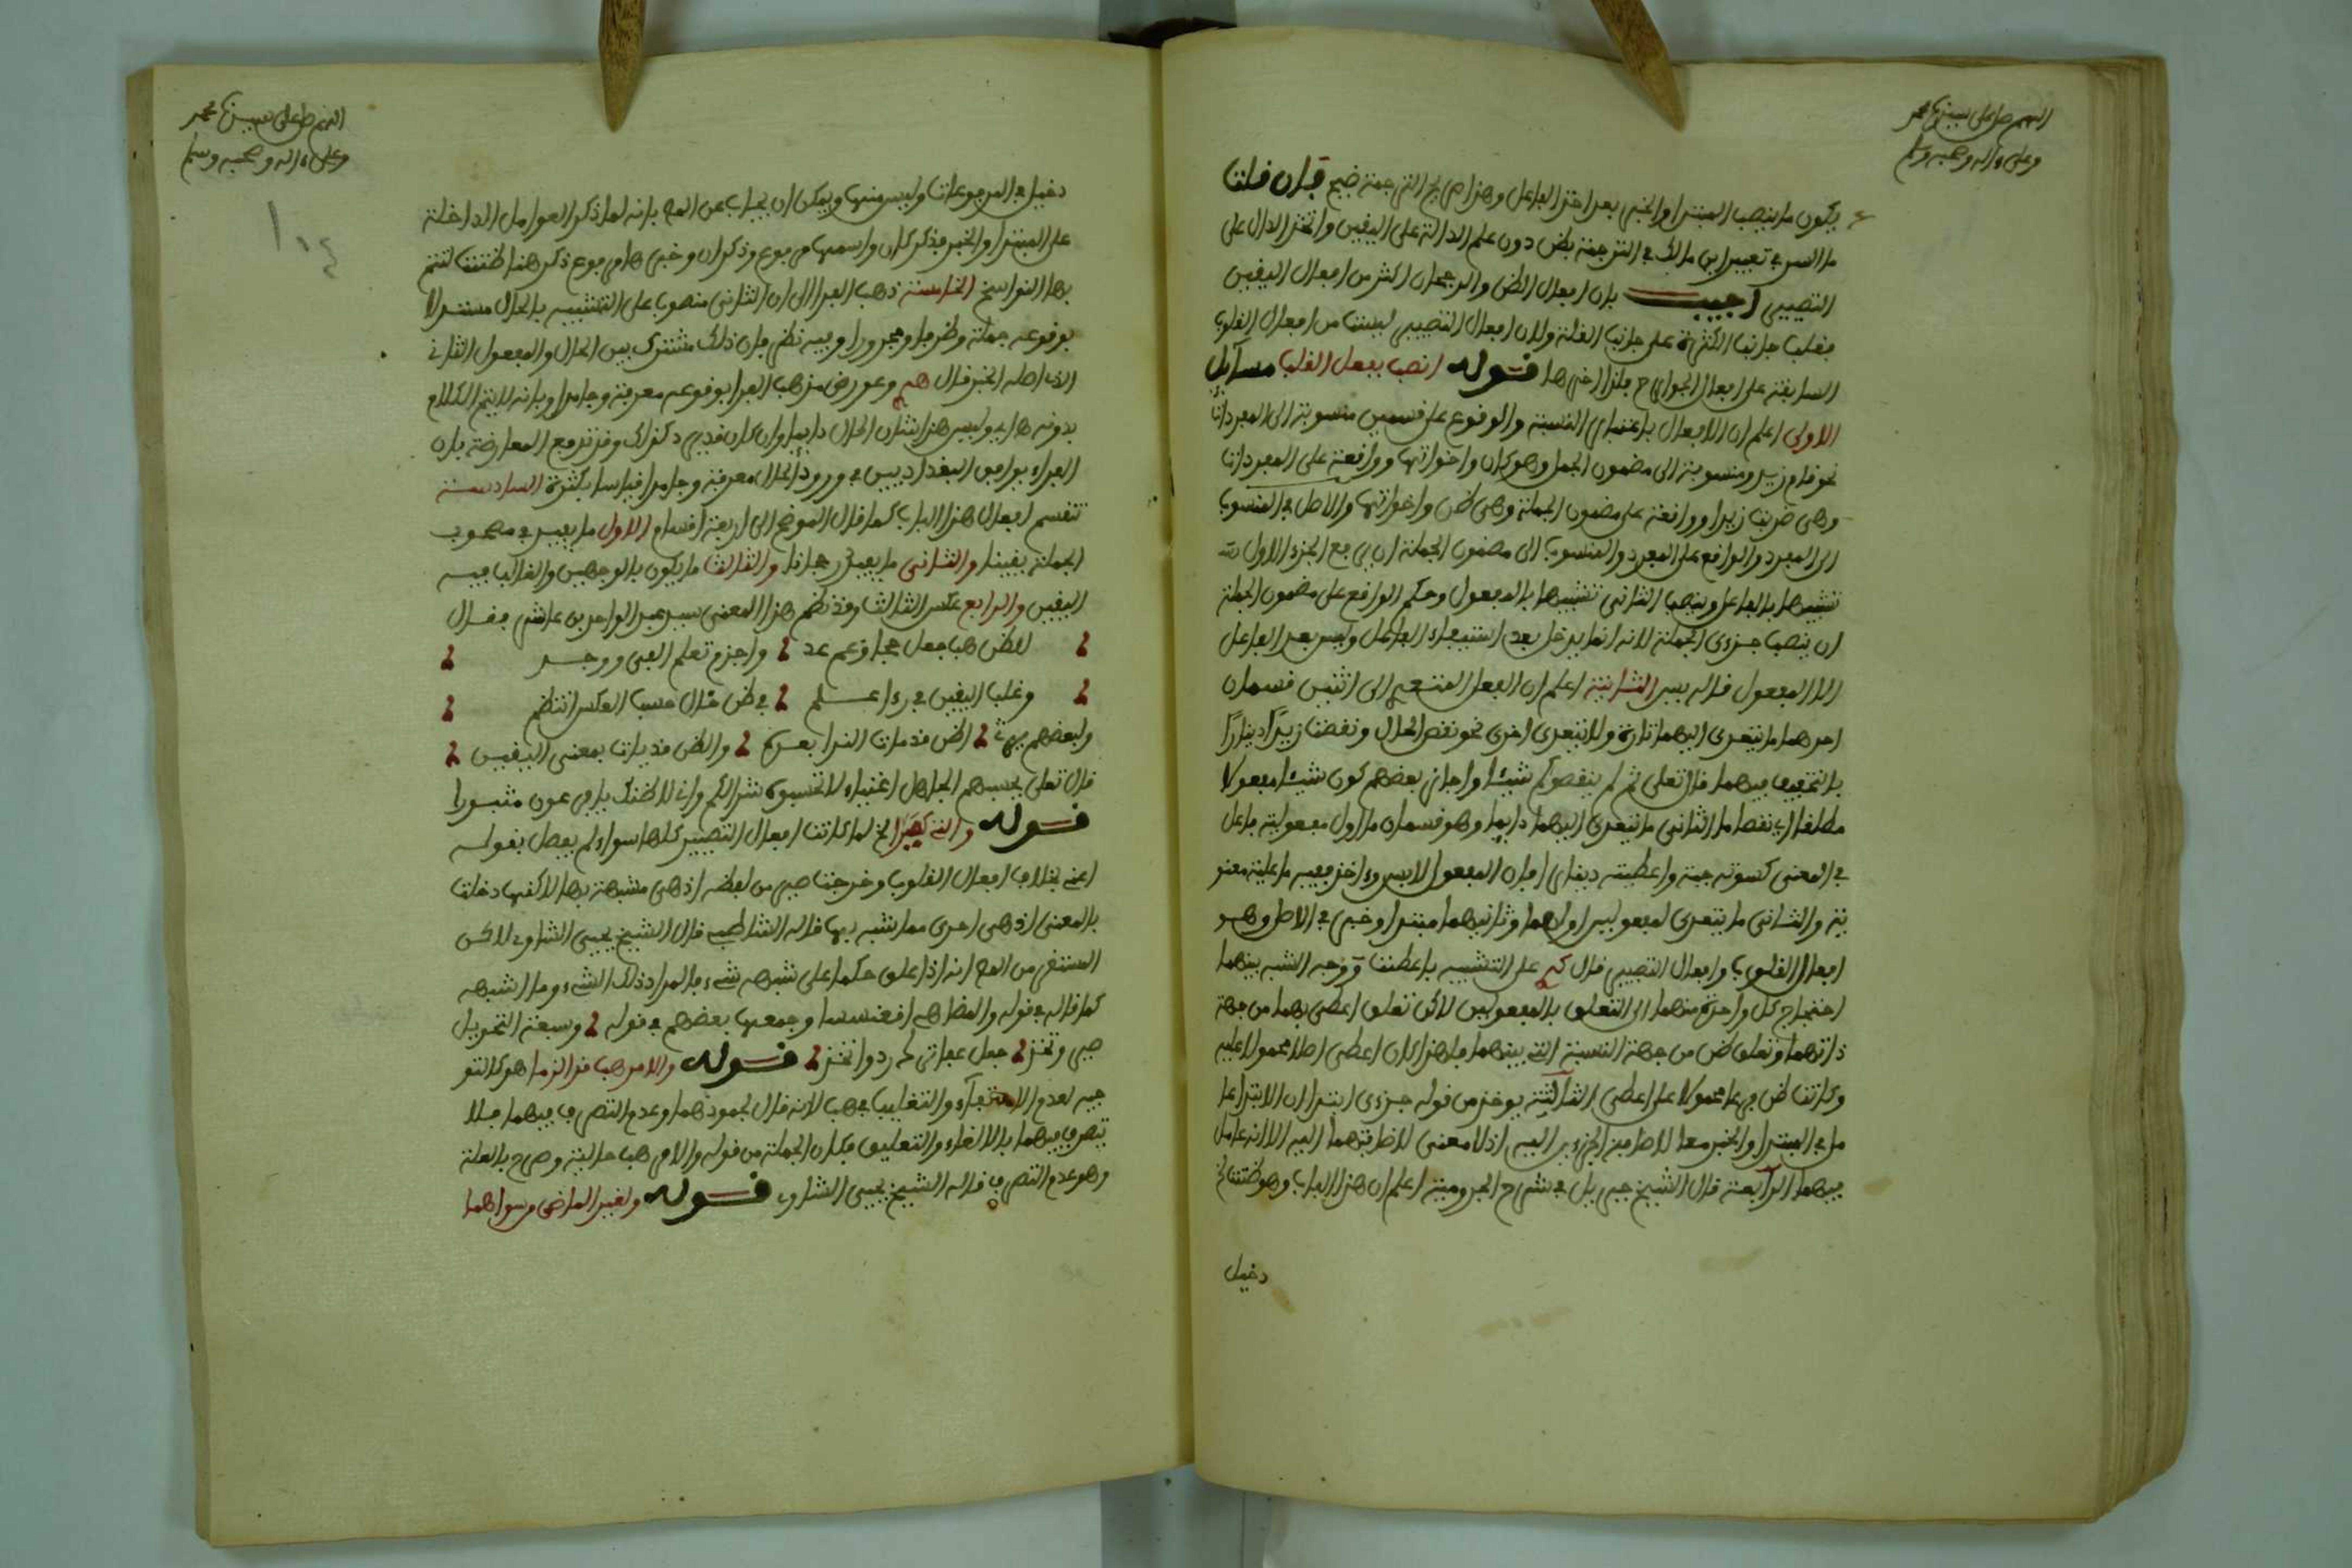 اللهم صل على سيدنا محمد
وعلى ءاله وصحبه وسلم
يكون ما ينصب المبتدا والخبر بعد اخذ الفاعل وهذا من الترجمة فإن قلت
ما السر في تعبير ابن مالك في الترجمة بظن دون علم الدالة على اليقين واتخذ الدال على
التصيير اجيب بان افعال الظن والرجحان اكثر من افعال اليقين
فغلب جانب الكثرة على جانب القلة ولان افعال التصيير ليست من افعال القلوب
السابقة على افعال الجوارح فلذا اخرها قوله انصب بفعل القلب مسآيل
الاولى اعلم ان الافعال باعتبار النسبة والوقوع على قسمين منسوبة الى المفردات
نحو قام زيد ومنسوبة الى مضمون الجمل وهو كان واخواتها وواقعة على المفردات
وهى ضربت زيدا وواقعة على مضمون الجملة وهى ظن واخواتها والاصل في المنسوب
الى المفرد والواقع على المفرد والمنسوب الى مضمون الجملة ان يرفع الجزء الاول
تشبيها بالفاعل وينصب الثانى تشبيها بالمفعول وحكم الواقع على مضمون الجملة
ان ينصب جزءى الجملة لانه انما يدخل بعد استيفاء الفاعل وليس بعد الفاعل
الا المفعول قاله يس الثانية اعلم ان الفعل المتعدي الى اثنين قسمان
احدهما ما يتعدى اليهما تارة ولا يتعدى اخرى نحو نقص المال ونقصت زيدا دينارا
بالتخفيف فيهما قال تعلى ثم لم ينقصوكم شيئا واجاز بعضهم كون شيئا مفعولا
مطلقا اي نقصا ما الثانى ما يتعدى اليهما دايما وهو قسمان ما اول مفعوليه فاعل
في المعنى كسوته جبة واعطيته دينارا فان المفعول لابس وءاخذ ففيه فاعلية معنو
ية والثانى ما يتعدى لمفعولين اولهما وثانيهما مبتدا وخبر في الاصل وهو
افعال القلوب وافعال التصيير قال على التشبيه باعطيت ووجه الشبه بينهما
احتياج كل واحدة منهما الى التعلق بالمفعولين لاكن تعلق اعطى بهما من جهة
ذاتهما وتعلق ظن من جهة النسبة التي بينهما فلهذا كان اعطى اصلا محمولا عليه
وكانت ظن فرعا محمولا على اعطى الثالثة يوخذ من قوله جزءى ابتدا ان الابتدا عا
مل في المبتدا والخبر معا لاضافة الجزءين اليه اذ لا معنى لاضافتهما اليه الا انه عامل
فيهما الرآبعة قال الشيخ جبريل في شرح الجرومية اعلم ان هذا الباب وهو ظننت
دخيل
اللهم صل على سيدنا محمد
وعلى ءاله وصحبه وسلم
١٠٤
دخيل في المرفوعات وليس منها ويمكن ان يجاب عن المص بانه لما ذكر العوامل الداخلة
على المبتدا والخبر فذكر كان واسمها مرفوع وذكر ان وخبرها مرفوع ذكر هنا ظننت لتتم
بها النواسخ الخامسة ذهب الفرا الى ان الثانى منصوب على التشبيه بالحال مستدلا
بوقوعه جملة وظرفا ومجرورا وفيه نظر فان ذلك مشترك بين الحال والمفعول الثانى
الذى اصله الخبر قال وعورض مذهب الفرا بوقوعه معرفة وجامدا وبانه لا يتم الكلام
بدونه وليس هذا شان الحال دايما وان كان قديم كذلك وقد تدفع المعارضة بان
الفراء يوافق البغداديين في ورود الحال معرفة وجامدا قياسا بكثرة السادسة
تنقسم افعال هذا الباب كما قال الموضح الى اربعة اقسام الاول ما يفيد في مضمون
الجملة يقينا والثانى ما يفيد رجحانا والثالث ما يكون بالوجهين والغالب فيه
اليقين والرابع عكس الثالث وقد نظم هذا المعنى سيد عبد الواحد بن عاشر فقال
للظن هب جعل حجا زعم عد واجزم تعلم الفى ووجد
وغلب اليقين في رءا علم في ظن خال حسب العكس انتظم
ولبعضهم بيت الظن قد مات الندا بعدكم والظن قد يات بمعنى اليقين
قال تعلى يحسبهم الجاهل اغنياء لا تحسبوه شرا لكم وانى لاظنك يافرعون مثبورا
قوله والتى كصيرا الخ لما كانت افعال التصيير كلها سواء لم يفصل بقوله
اعنى بخلاف افعال القلوب وخرجت صير من لفظه اذ هى مشبهة بها لاكنها دخلت
بالمعنى اذ هى احرى مما شبه بها قاله الشاطبى قال الشيخ يحيى الشاوى لاكن
المستقر من المص انه اذا علق حكما على شبه شىء فالمراد ذلك الشىء وما اشبهه
كما قاله في قوله والمضاهى افعنسسا وجمعها بعضهم في قوله وسبعة التحويل
صير وتخذ جعل ردوا تخذ قوله والامر هب قد الزما هو كالتو
جيه لعدم الالغآء والتعليق في هب لانه قال لجمودهما وعدم التصرف فيهما فلا
تصرف فيهما بالالغاء والتعليق فكان الجملة من قوله والامر هب حالية وصرح بالعلة
وهو عدم التصرف قاله الشيخ يحيى الشاوى قوله ولغير الماضى من سواهما